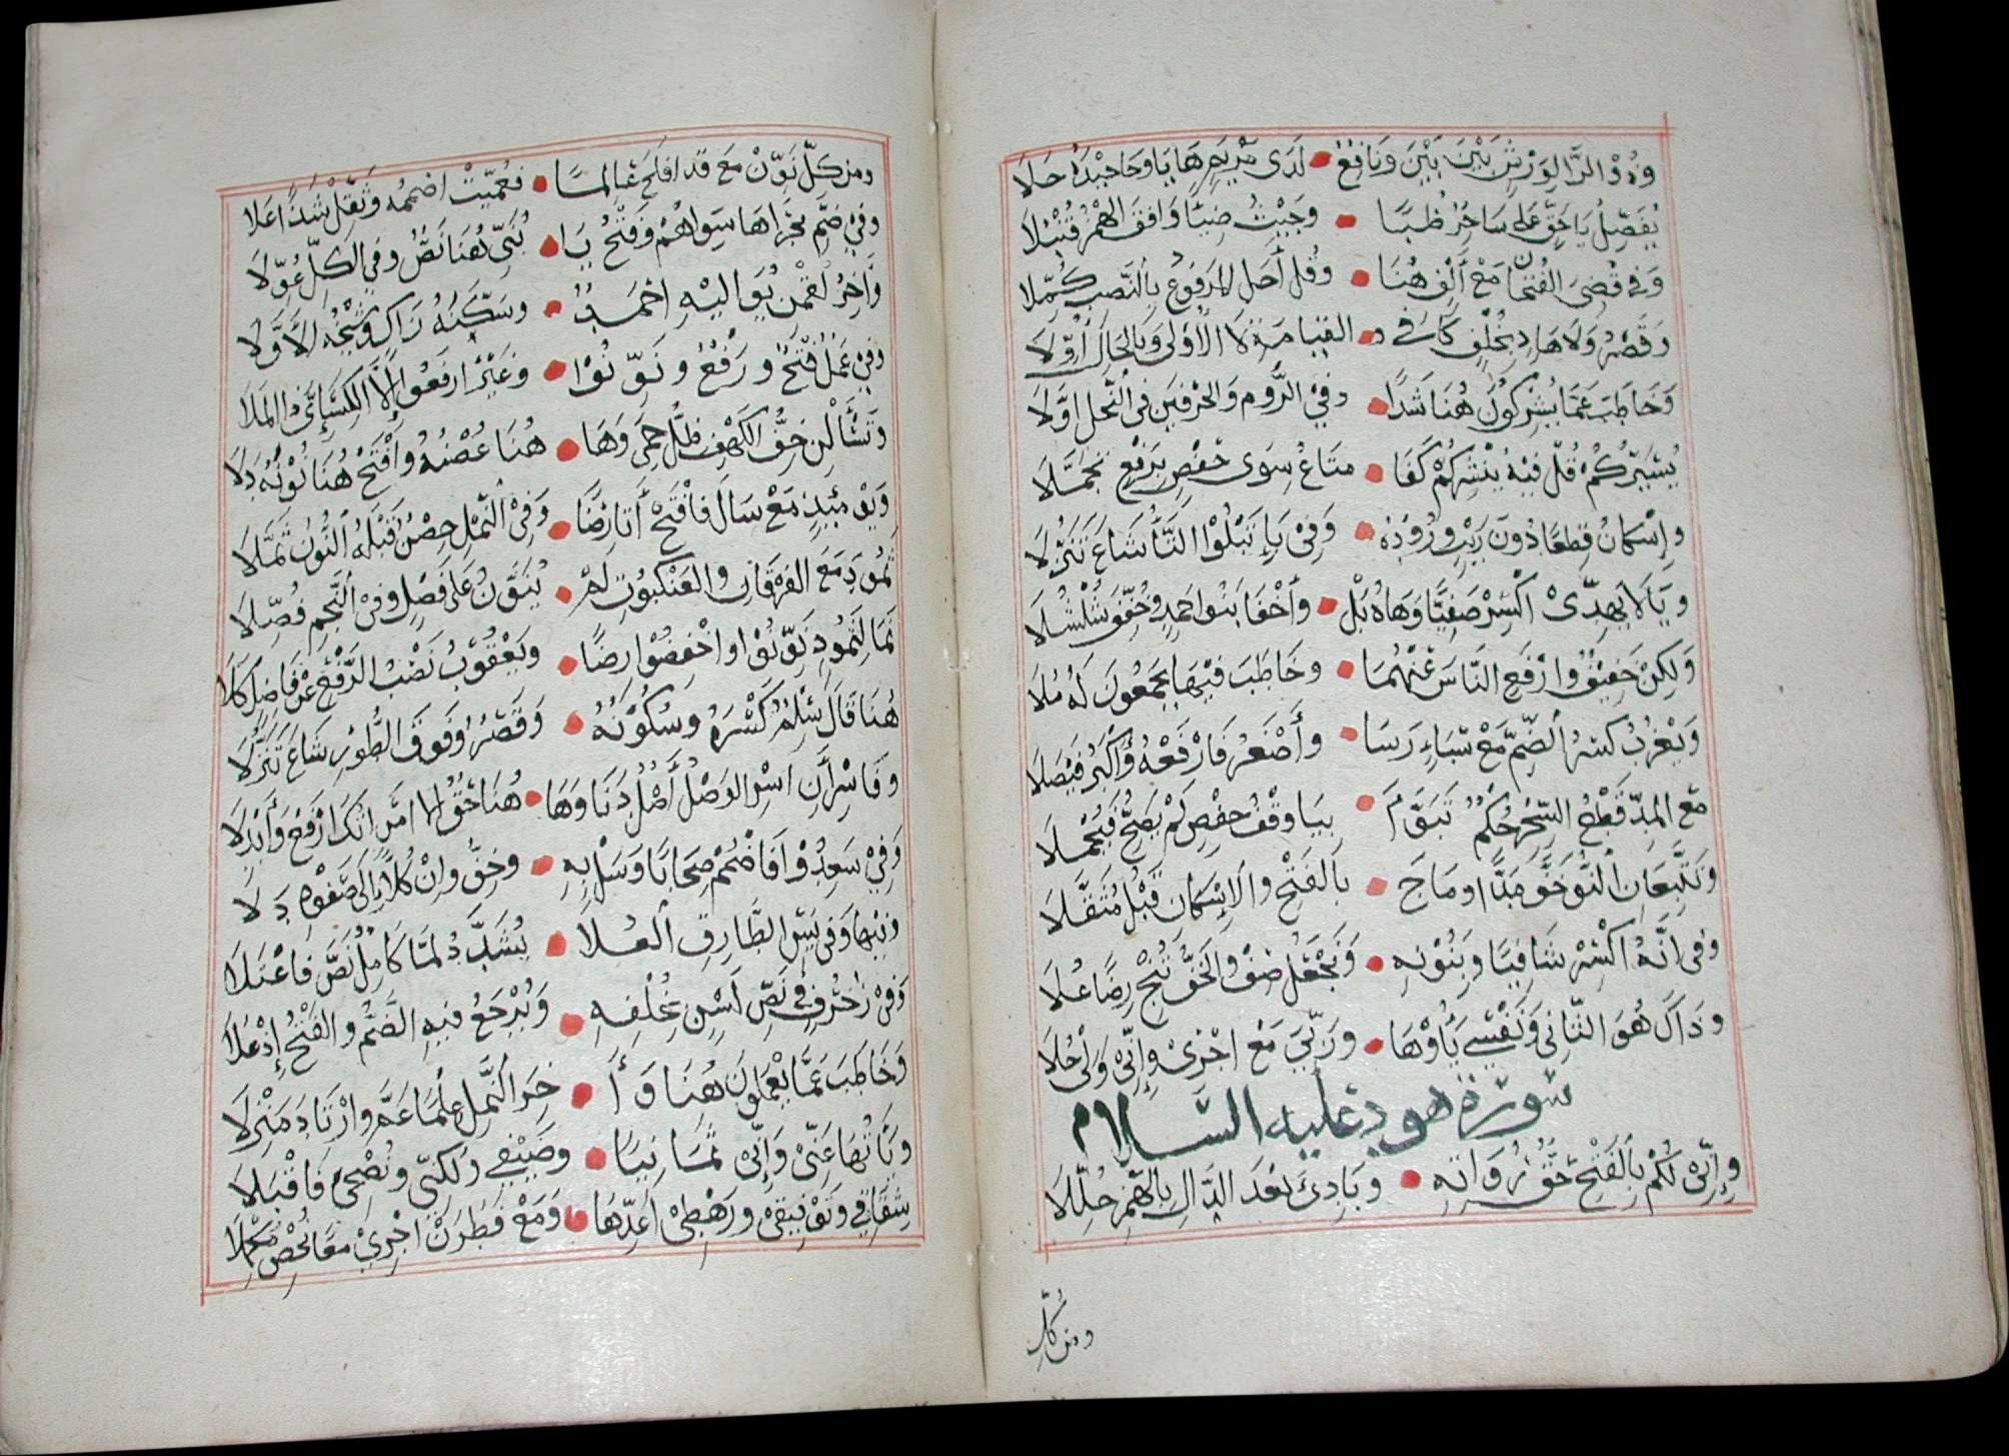 وذو الرا لورش بين بين ونافع • لدى مريم هايا وحا جيده حلا
يفصل يا حق على ساحر ظبا • وحيث ضياء وافق الهمز قنبلا
وفي قضي الفتحان مع ألف هنا • وقل أجل المرفوع بالنصب كملا
وقصر ولا هاد بخلف زكا وفي • القيامة لا الأولى وبالحال أولا
وخاطب عما يشركون هنا شذا • وفي الروم والحرفين في النحل أولا
يسيركم قل فيه ينشركم كفا • متاع سوى حفص برفع تحملا
وإسكان قطعا دون ريب وروده • وفي باء تبلوا التاء شاع تنزلا
ويا لا يهدي اكسر صفيا وهاه نل • وأخفا بنوا حمد وخفف شلشلا
ولكن خفيف وارفع الناس عنهما • وخاطب فيها يجمعون له ملا
ويعزب كسر الضم مع سباء رسا • وأصغر فارفعه وأكبر فيصلا
مع المد قطع السحر حكم تبوأ • بيا وقف حفص لم يصح فيحملا
وتتبعان النون خف مدا وماج • بالفتح والإسكان قبل مثقلا
وفي أنه اكسر شافيا وبنونه • ونجعل صف والخف ننج رضا علا
وذاك هو الثاني ونفسي ياؤها • وربي مع اجري وإني ولي حلا
سورة هود عليه السلام
وإني لكم بالفتح حق رواته • وبادئ بعد الدال بالهمز حللا
ومن كل
ومن كل نون مع قد افلح عالما • فعميت اضممه وثقل شذا علا
وفي ضم مجراها سواهم وفتح يا • بني هنا نص وفي الكل عولا
وآخر لقمن يواليه احمد • وسكنه زاك وشيخه الأولا
وفي عمل فتح ورفع ونونوا • وغير ارفعوا إلا الكسائي ذا الملا
وتسألن خف الكهف ظل حمى وها • هنا غصنه وافتح هنا نونه دلا
ويومئذ مع سال فافتح أتا رضا • وفي النمل حصن قبله النون ثملا
ثمود مع الفرقان والعنكبوت لم • ينون على فصل وفي النجم فصلا
نما لثمود نونوا واخفضوا رضا • ويعقوب نصب الرفع عن فاضل كلا
هنا قال سلم كسره وسكونه • وقصر وفوق الطور شاع تنزلا
وفاسر أن اسر الوصل أصل دنا وها • هنا حق الا امراتك ارفع وأبدلا
وفي سعدوا فاضمم صحابا وسل به • وخف وان كلا إلى صفوه دلا
وفيها وفي يس الطارق العلا • يشدد لما كامل نص فاعتلا
وفي زخرف في نص لسن بخلفه • ويرجع فيه الضم والفتح إذ علا
وخاطب عما يعملون هنا وأ • خر النمل علما عم وارتاد منزلا
وياتها عني وإني ثمانيا • وضيفي ولكني ونصحي فاقبلا
شقاقي وتوفيقي ورهطي عدها • ومع فطرن اجري معا تحص مكملا